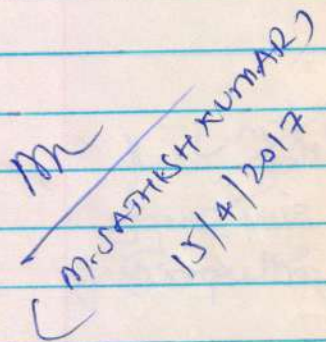 (M. SATHISH KUMAR)
15/4/2017